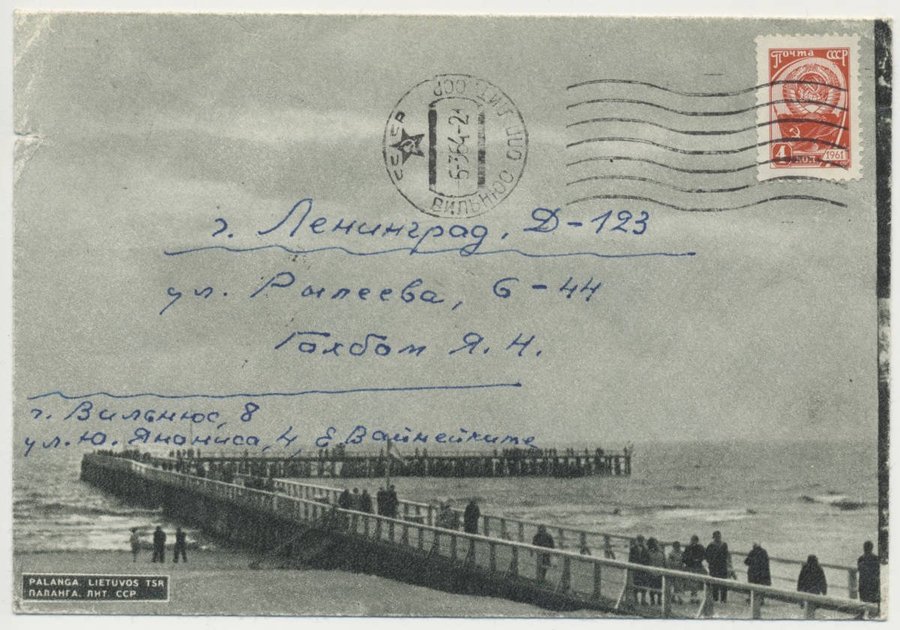 Почта СССР
4 коп. 1961
СССР
ЛИТ. ССР
6-364-21
ВИЛЬНЮС
г. Ленинград, Д-123
ул. Рылеева, 6-44
Гохбом Я. Н.
г. Вильнюс, 8
ул. Ю. Янониса, 4, Е. Вайнейките
PALANGA. LIETUVOS TSR
ПАЛАНГА. ЛИТ. ССР